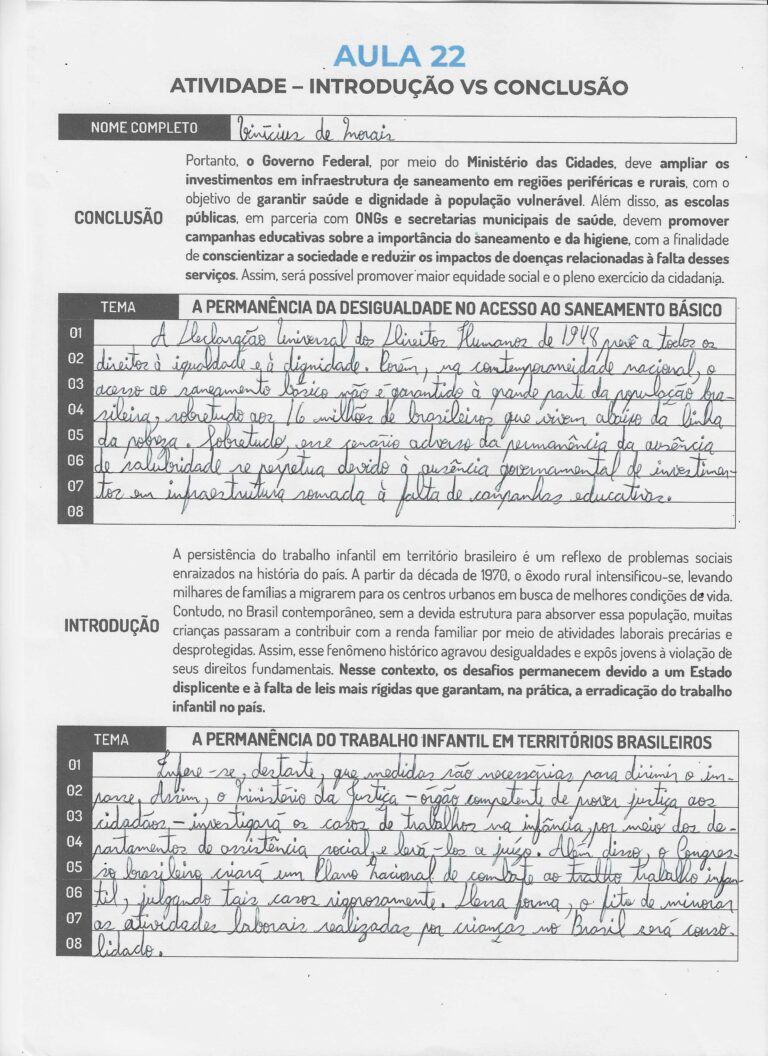 AULA 22
ATIVIDADE – INTRODUÇÃO VS CONCLUSÃO
NOME COMPLETO Vinícius de Morais
Portanto, o Governo Federal, por meio do Ministério das Cidades, deve ampliar os
investimentos em infraestrutura de saneamento em regiões periféricas e rurais, com o
objetivo de garantir saúde e dignidade à população vulnerável. Além disso, as escolas
CONCLUSÃO
públicas, em parceria com ONGs e secretarias municipais de saúde, devem promover
campanhas educativas sobre a importância do saneamento e da higiene, com a finalidade
de conscientizar a sociedade e reduzir os impactos de doenças relacionadas à falta desses
serviços. Assim, será possível promover maior equidade social e o pleno exercício da cidadania.
TEMA A PERMANÊNCIA DA DESIGUALDADE NO ACESSO AO SANEAMENTO BÁSICO
01 A Declargção Universal dos Direitos Humanos de 1948 prevê a todos os
02 direitos à igualdade e à dignidade. Porém, na contemporaneidade nacional, o
03 acesso ao saneamento básico não é garantido à grande parte da população bra-
04 sileira, sobretudo aos 16 milhões de brasileiros que vivem abaixo da linha
05 da pobreza. Sobretudo, esse cenário adverso da permanência da ausência
06 de salubridade se perpetua devido à ausência governamental de investimen-
07 tos em infraestrutura somada à falta de campanhas educativas.
08
A persistência do trabalho infantil em território brasileiro é um reflexo de problemas sociais
enraizados na história do país. A partir da década de 1970, o êxodo rural intensificou-se, levando
milhares de famílias a migrarem para os centros urbanos em busca de melhores condições de vida.
Contudo, no Brasil contemporâneo, sem a devida estrutura para absorver essa população, muitas
INTRODUÇÃO
crianças passaram a contribuir com a renda familiar por meio de atividades laborais precárias e
desprotegidas. Assim, esse fenômeno histórico agravou desigualdades e expôs jovens à violação de
seus direitos fundamentais. Nesse contexto, os desafios permanecem devido a um Estado
displicente e à falta de leis mais rígidas que garantam, na prática, a erradicação do trabalho
infantil no país.
TEMA A PERMANÊNCIA DO TRABALHO INFANTIL EM TERRITÓRIOS BRASILEIROS
01 Infere-se, destarte, que medidas são necessárias para dirimir o im-
02 passe. Assim, o Ministério da Justiça – órgão competente de prover justiça aos
03 cidadãos – investigará os casos de trabalhos na infância, por meio dos de-
04 partamentos de assistência social, e levá-los a juízo. Além disso, o Congres-
05 so brasileiro criará um Plano Nacional de combate ao tralho trabalho infan-
06 til, julgando tais casos rigorosamente. Dessa forma, o fito de minorar
07 as atividades laborais realizadas por crianças no Brasil será conso-
08 lidado.